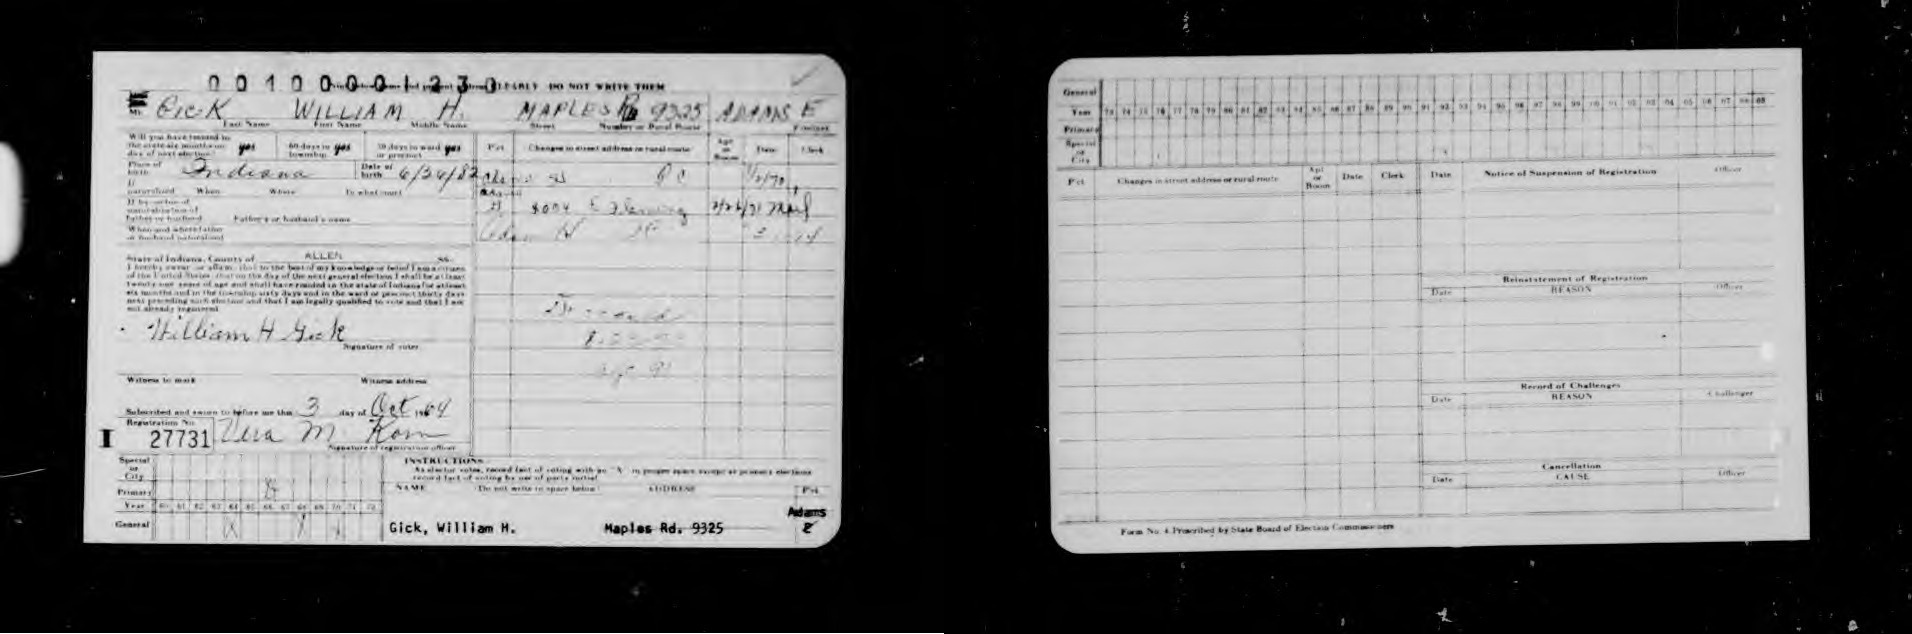 0010000123
CLEARLY DO NOT WRITE THEM
Mr. GICK WILLIAM H. MAPLES Rd 9325 ADAMS E
Last Name First Name Middle Name Street Number or Rural Route Precinct
Will you have resided in
the state six months on
day of next election? yes 60 days in township yes 30 days in ward or precinct yes
Pct Changes in street address or rural route Apt or Room Date Clerk
Place of birth Indiana Date of birth 6/26/82
1/2/70
If naturalized When Where To what court
H 8004 E Fleming
If by virtue of
naturalization of
father or husband Father's or husband's name
When and where father
or husband naturalized
State of Indiana, County of ALLEN SS.
I hereby swear or affirm that to the best of my knowledge or belief I am a citizen
of the United States, that on the day of the next general election I shall be at least
twenty-one years of age and shall have resided in the state of Indiana for at least
six months and in the township sixty days and in the ward or precinct thirty days
next preceding such election and that I am legally qualified to vote and that I am
not already registered
William H Gick
Signature of voter
Witness to mark Witness address
Subscribed and sworn to before me this 3 day of Oct 1964
Registration No.
I 27731 Vera M.
Signature of registration officer
Special or City
Primary
Year 60 61 62 63 64 65 66 67 68 69 70 71 72
General X X X
INSTRUCTIONS
As elector votes, record fact of voting with an "X" in proper space except at primary elections
record fact of voting by use of party initial
NAME (Do not write in space below) ADDRESS Pct
Gick, William H. Maples Rd. 9325 Adams E
General
Year 73 74 75 76 77 78 79 80 81 82 83 84 85 86 87 88 89 90 91 92 93 94 95 96 97 98 99 00 01 02 03 04 05 06 07 08 09
Primary
Special or City
Pct Changes in street address or rural route Apt or Room Date Clerk
Date Notice of Suspension of Registration Officer
Reinstatement of Registration
Date REASON Officer
Record of Challenges
Date REASON Challenger
Cancellation
Date CAUSE Officer
Form No. 4 Prescribed by State Board of Election Commissioners